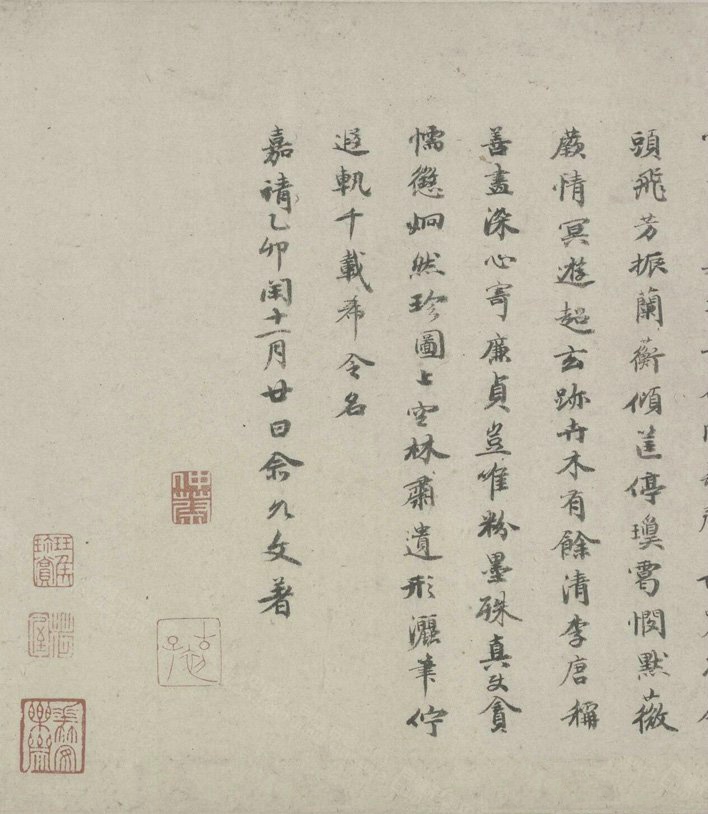 頭飛芳振蘭蘅傾筐停憫默薇
蕨情冥遊超玄跡卉木有餘清李唐稱
善畫深心寄廉貞豈唯粉墨殊真貪
懦懲炯然珍圖上空林肅遺形灑筆佇
遐軌千載希令名
嘉靖乙卯閏十一月廿日俞允文著